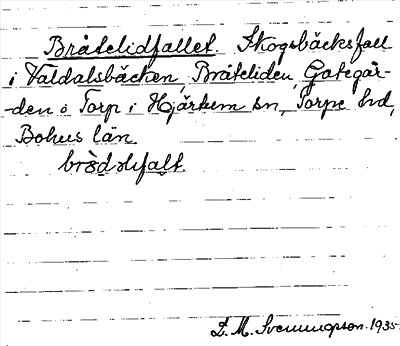 Bråtelidfallet. Skogsbäcksfall
i Väldalsbäcken, Bråteliden, Gategår-
-den o Torp i Hjärtum sn, Torpe hd,
Bohus län.
D. M. Svenungsson. 1935.